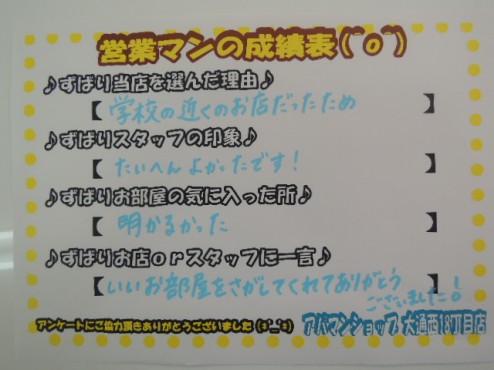 営業マンの成績表(^o^)
♪ずばり当店を選んだ理由♪
【学校の近くのお店だったため】
♪ずばりスタッフの印象♪
【たいへんよかったです！】
♪ずばりお部屋の気に入った所♪
【明かるかった】
♪ずばりお店orスタッフに一言♪
【いいお部屋をさがしてくれてありがとう】
ございました！
アンケートにご協力頂きありがとうございました
アパマンショップ 大通西18丁目店